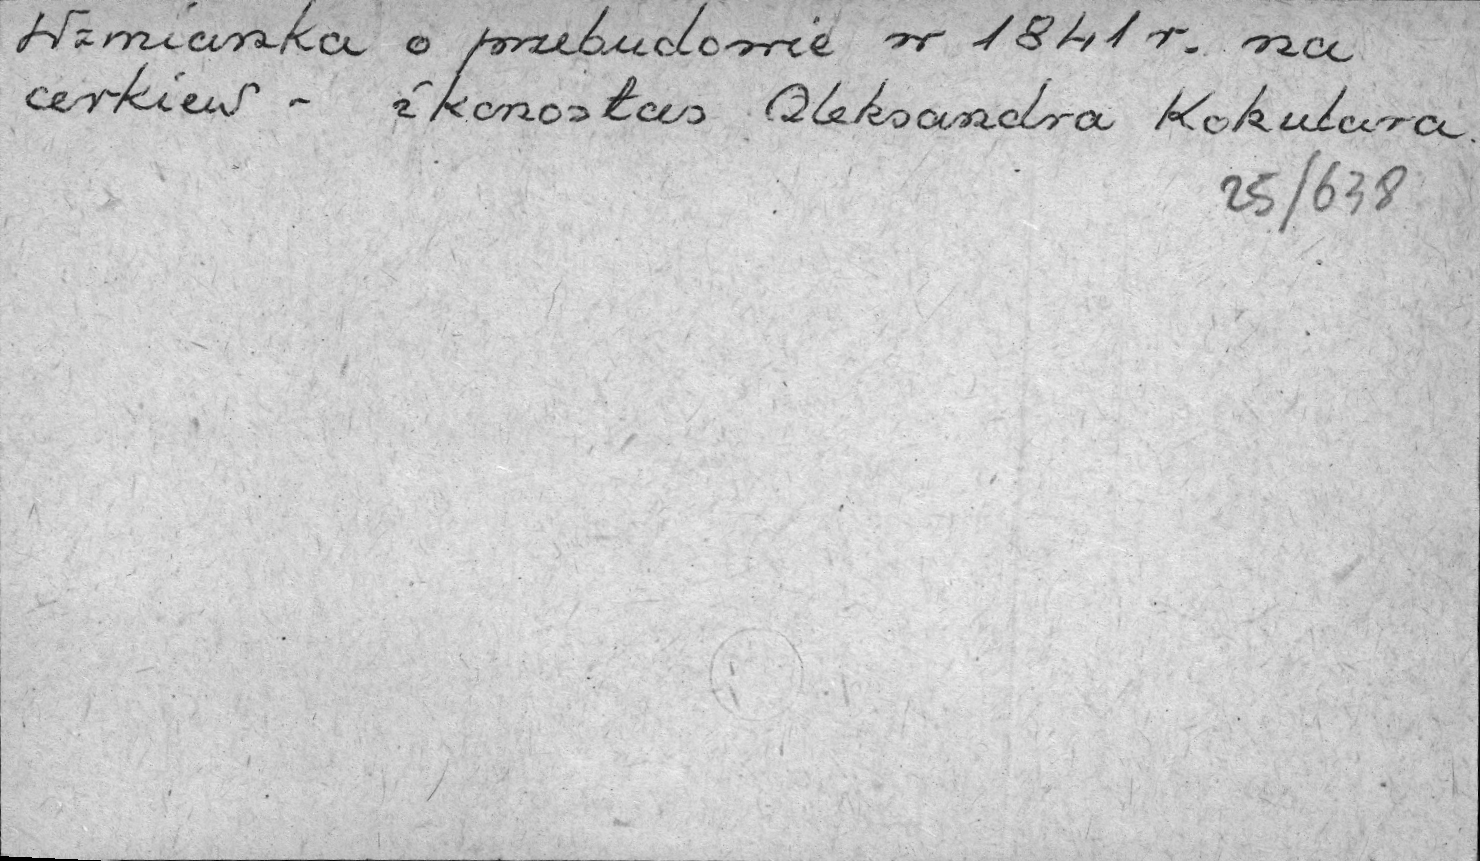 Wzmianka o przebudowie w 1841 r. na
cerkiew - ikonostas Aleksandra Kokulara.
25/638